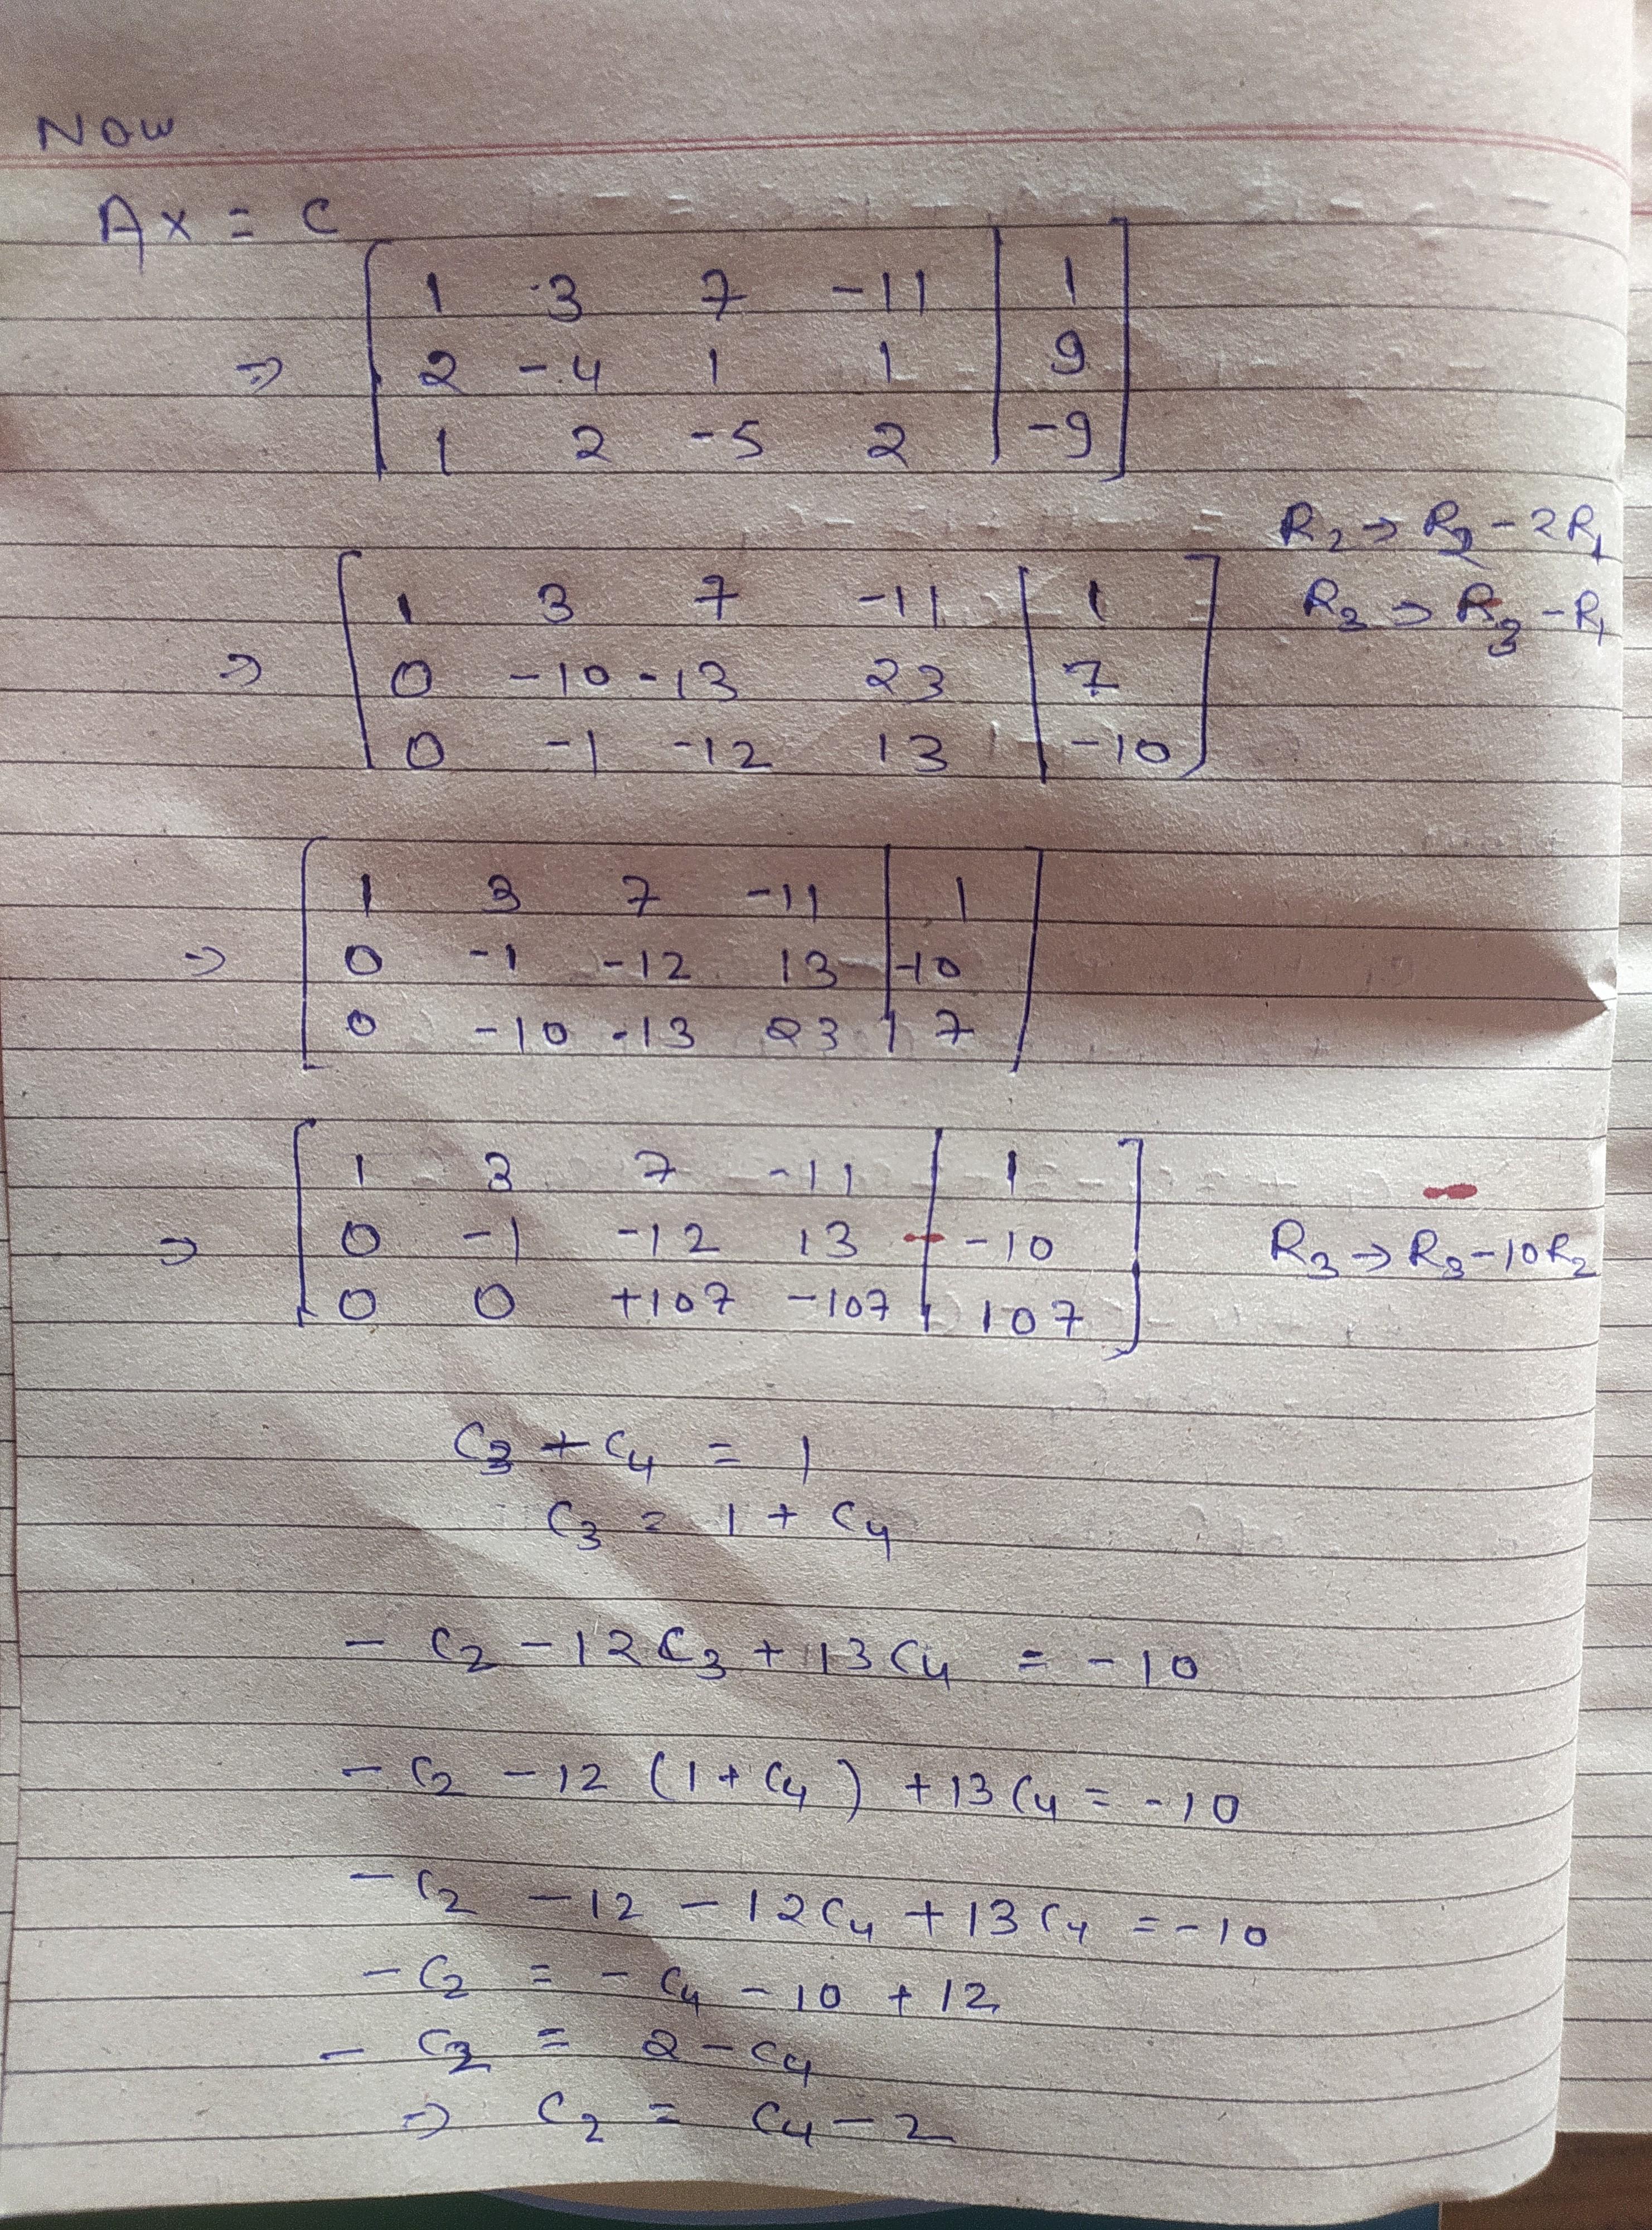 Now
Ax = C
1 3 7 -11 | 1
⇒ 2 -4 1 1 | 9
1 2 -5 2 | -9
R₂ → R₂ - 2R₁
R₃ → R₃ - R₁
1 3 7 -11 | 1
⇒ 0 -10 -13 23 | 7
0 -1 -12 13 | -10
1 3 7 -11 | 1
⇒ 0 -1 -12 13 | -10
0 -10 -13 23 | 7
1 3 7 -11 | 1
⇒ 0 -1 -12 13 | -10 R₃ → R₃ - 10R₂
0 0 +107 -107 | 107
C₃ + C₄ = 1
C₃ = 1 + C₄
- C₂ - 12C₃ + 13C₄ = -10
- C₂ - 12 (1 + C₄) + 13C₄ = -10
- C₂ - 12 - 12C₄ + 13C₄ = -10
- C₂ = - C₄ - 10 + 12
- C₂ = 2 - C₄
⇒ C₂ = C₄ - 2